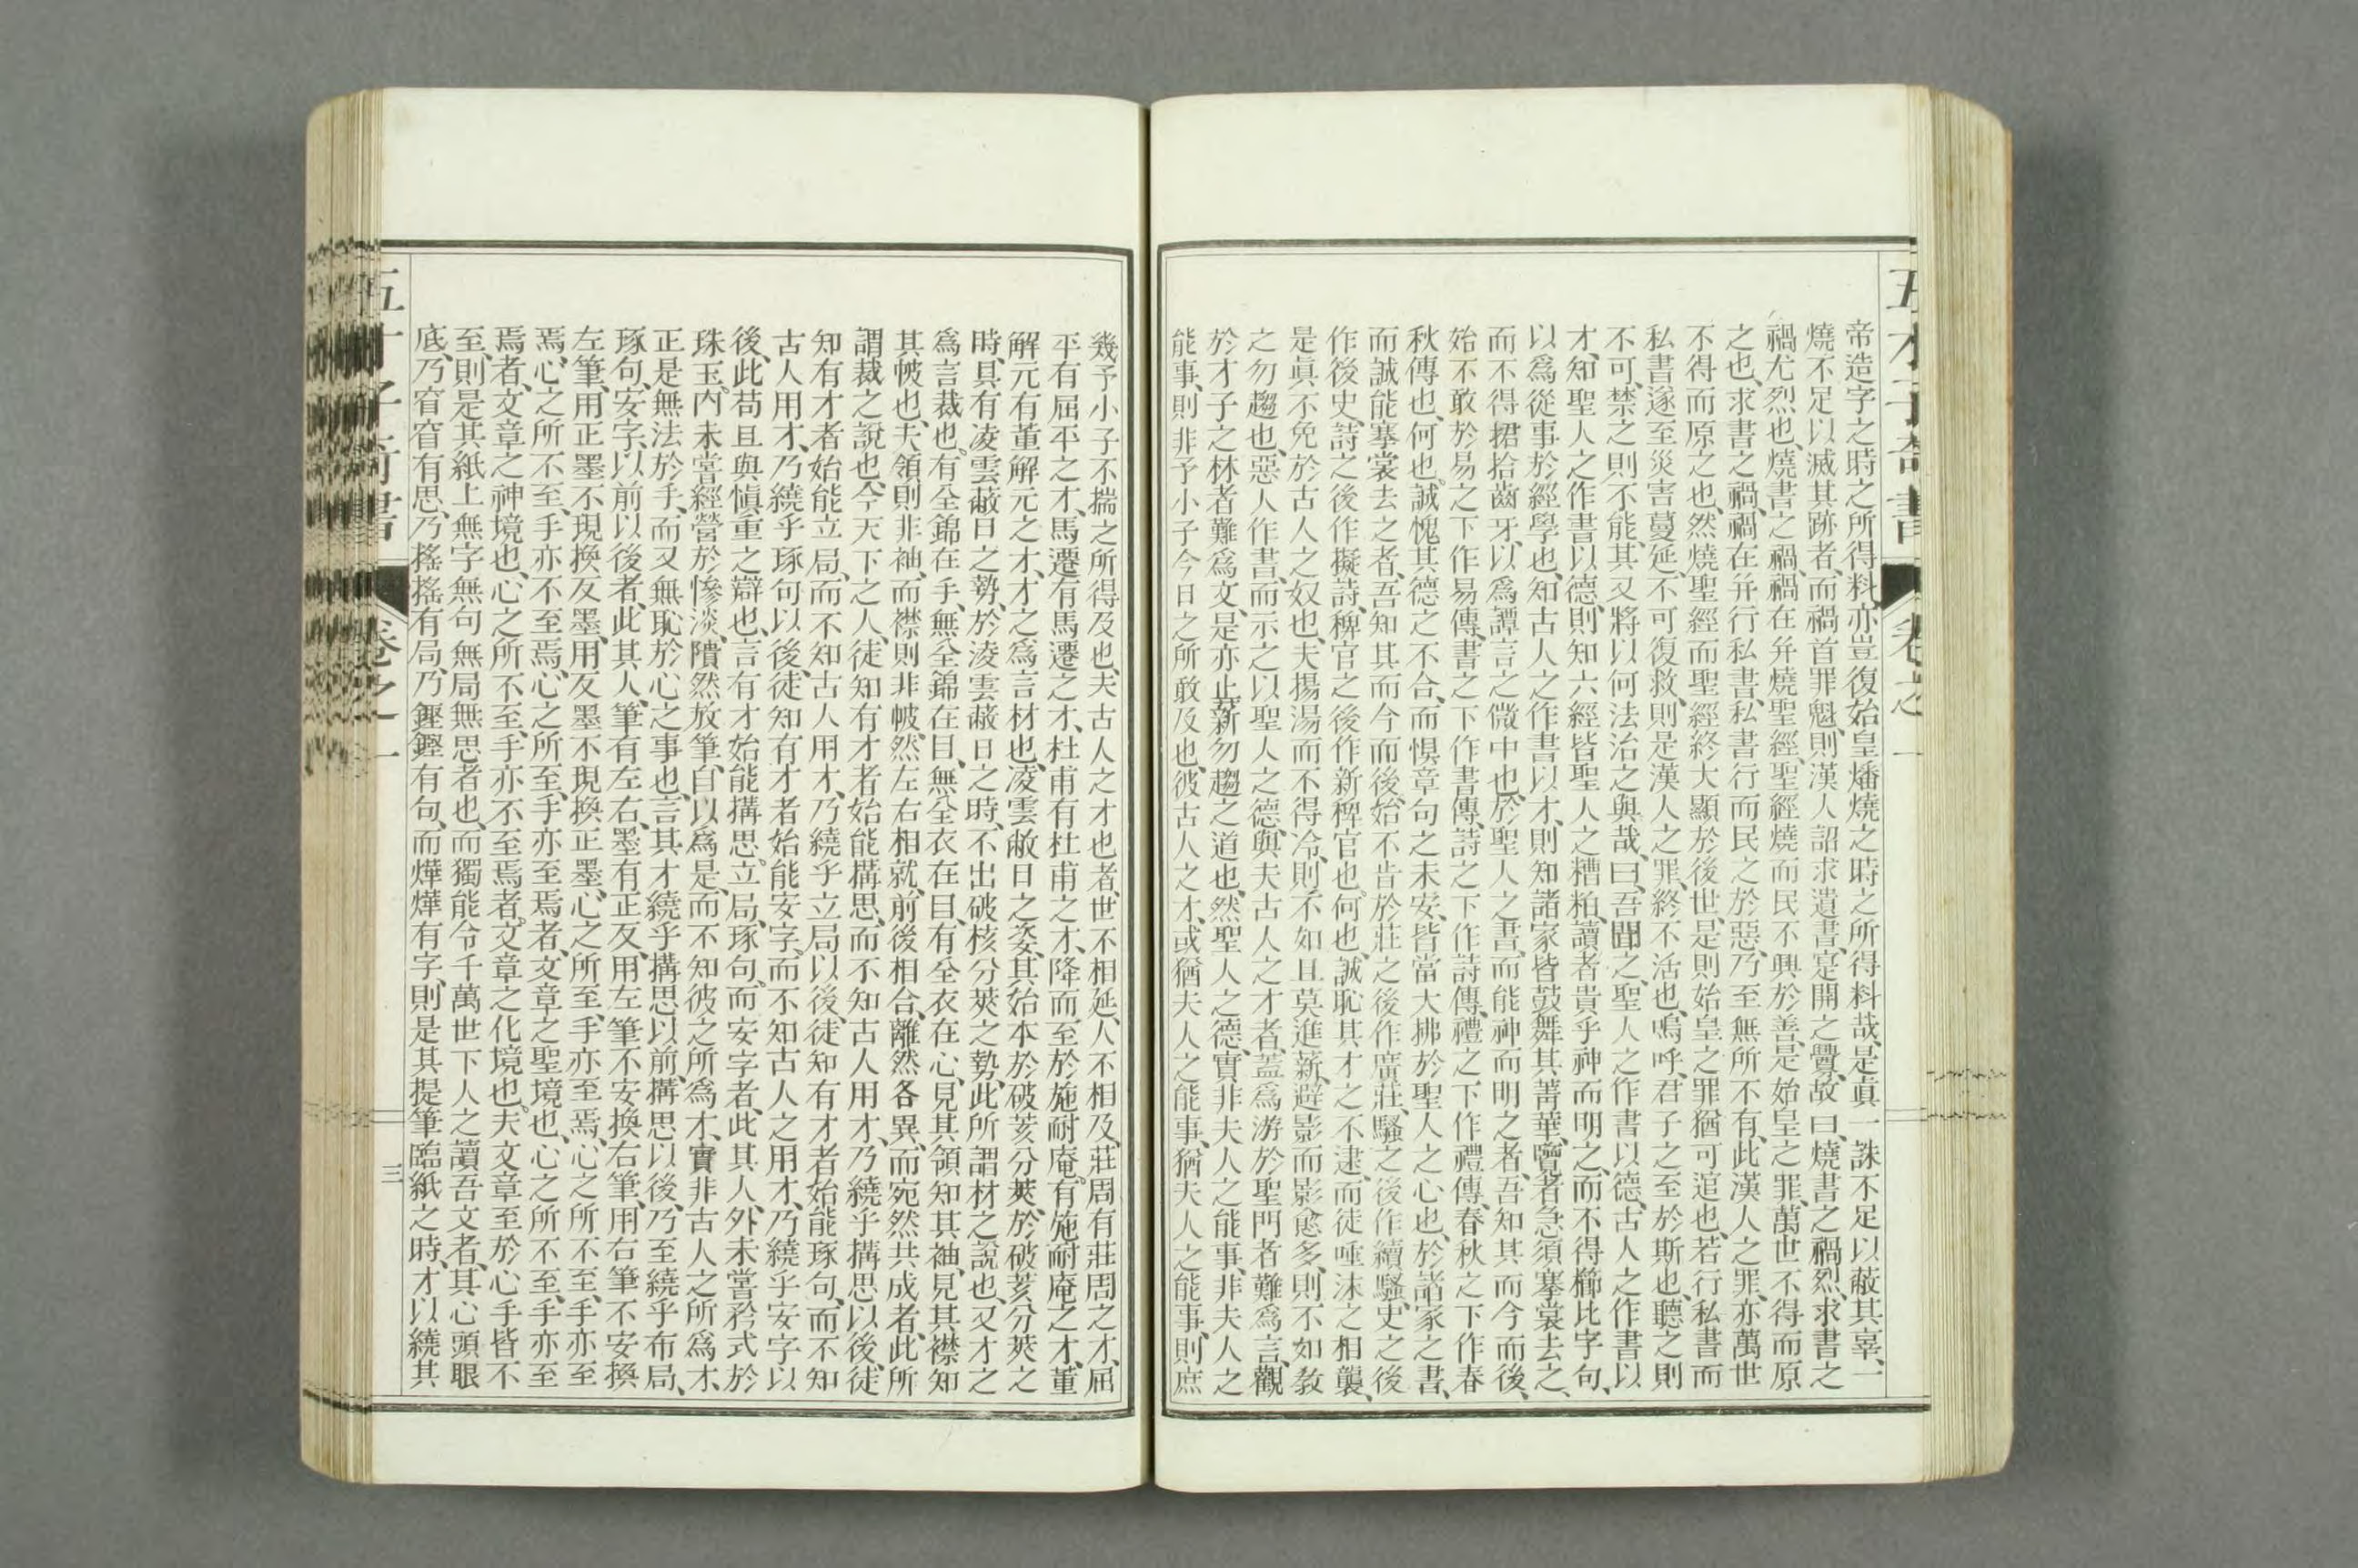 帝造字之時之所得料、亦豈復始皇燔燒之時之所得料哉、是眞一誅不足以蔽其辜、一
燒不足以滅其跡者、而禍首罪魁、則漢人詔求遺書、寔開之釁、故曰、燒書之禍烈、求書之
禍尤烈也、燒書之禍、禍在幷燒聖經、聖經燒而民不興於善、是始皇之罪、萬世不得而原
之也、求書之禍、禍在幷行私書、私書行而民之於惡、乃至無所不有、此漢人之罪、亦萬世
不得而原之也、然燒聖經而聖經終大顯於後世、是則始皇之罪猶可逭也、若行私書而
私書遂至災害蔓延、不可復救、則是漢人之罪、終不活也、嗚呼、君子之至於斯也、聽之則
不可、禁之則不能、其又將以何法治之與哉、曰、吾聞之、聖人之作書以德、古人之作書以
才、知聖人之作書以德、則知六經皆聖人之糟粕、讀者貴乎神而明之、而不得櫛比字句、
以爲從事於經學也、知古人之作書以才、則知諸家皆鼓舞其菁華、覽者急須搴裳去之、
而不得捃拾齒牙、以爲譚言之微中也、於聖人之書、而能神而明之者、吾知其而今而後、
始不敢於易之下作易傳、書之下作書傳、詩之下作詩傳、禮之下作禮傳、春秋之下作春
秋傳也、何也、誠愧其德之不合、而懼章句之未安、皆當大拂於聖人之心也、於諸家之書、
而誠能搴裳去之者、吾知其而今而後、始不肯於莊之後作廣莊、騷之後作續騷、史之後
作後史、詩之後作擬詩、稗官之後作新稗官也、何也、誠恥其才之不逮、而徒唾沫之相襲、
是眞不免於古人之奴也、夫揚湯而不得冷、則不如且莫進薪、避影而影愈多、則不如敎
之勿趨也、惡人作書、而示之以聖人之德、與夫古人之才者、蓋爲游於聖門者難爲言、觀
於才子之林者難爲文、是亦止薪勿趨之道也、然聖人之德、實非夫人之能事、非夫人之
能事、則非予小子今日之所敢及也、彼古人之才、或猶夫人之能事、猶夫人之能事、則庶
幾予小子不揣之所得及也、夫古人之才也者、世不相延、人不相及、莊周有莊周之才、屈
平有屈平之才、馬遷有馬遷之才、杜甫有杜甫之才、降而至於施耐庵、有施耐庵之才、董
解元有董解元之才、才之爲言材也、凌雲蔽日之姿、其始本於破荄分莢、於破荄分莢之
時、具有凌雲蔽日之勢、於淩雲蔽日之時、不出破核分莢之勢、此所謂材之說也、又才之
爲言裁也、有全錦在手、無全錦在目、無全衣在目、有全衣在心、見其領知其袖、見其襟知
其帔也、夫領則非袖、而襟則非帔、然左右相就、前後相合、離然各異、而宛然共成者、此所
謂裁之說也、今天下之人、徒知有才者始能搆思、而不知古人用才、乃繞乎搆思以後、徒
知有才者始能立局、而不知古人用才、乃繞乎立局以後、徒知有才者始能琢句、而不知
古人用才、乃繞乎琢句以後、徒知有才者始能安字、而不知古人之用才、乃繞乎安字以
後、此苟且與愼重之辯也、言有才始能搆思、立局、琢句、而安字者、此其人、外未嘗矜式於
珠玉、內未嘗經營於慘淡、隤然放筆、自以爲是、而不知彼之所爲才、實非古人之所爲才、
正是無法於手、而又無恥於心之事也、言其才繞乎搆思以前、搆思以後、乃至繞乎布局、
琢句、安字、以前以後者、此其人、筆有左右、墨有正反、用左筆不安換右筆、用右筆不安換
左筆、用正墨不現換反墨、用反墨不現換正墨、心之所至、手亦至焉、心之所不至、手亦至
焉、心之所不至、手亦不至焉、心之所至、手亦至焉者、文章之聖境也、心之所不至、手亦至
焉者、文章之神境也、心之所不至、手亦不至焉者、文章之化境也、夫文章至於心手皆不
至、則是其紙上無字無句無局無思者也、而獨能令千萬世下人之讀吾文者、其心頭眼
底、乃窅窅有思、乃搖搖有局、乃鏗鏗有句、而燁燁有字、則是其提筆臨紙之時、才以繞其
五才子奇書
卷之一
三